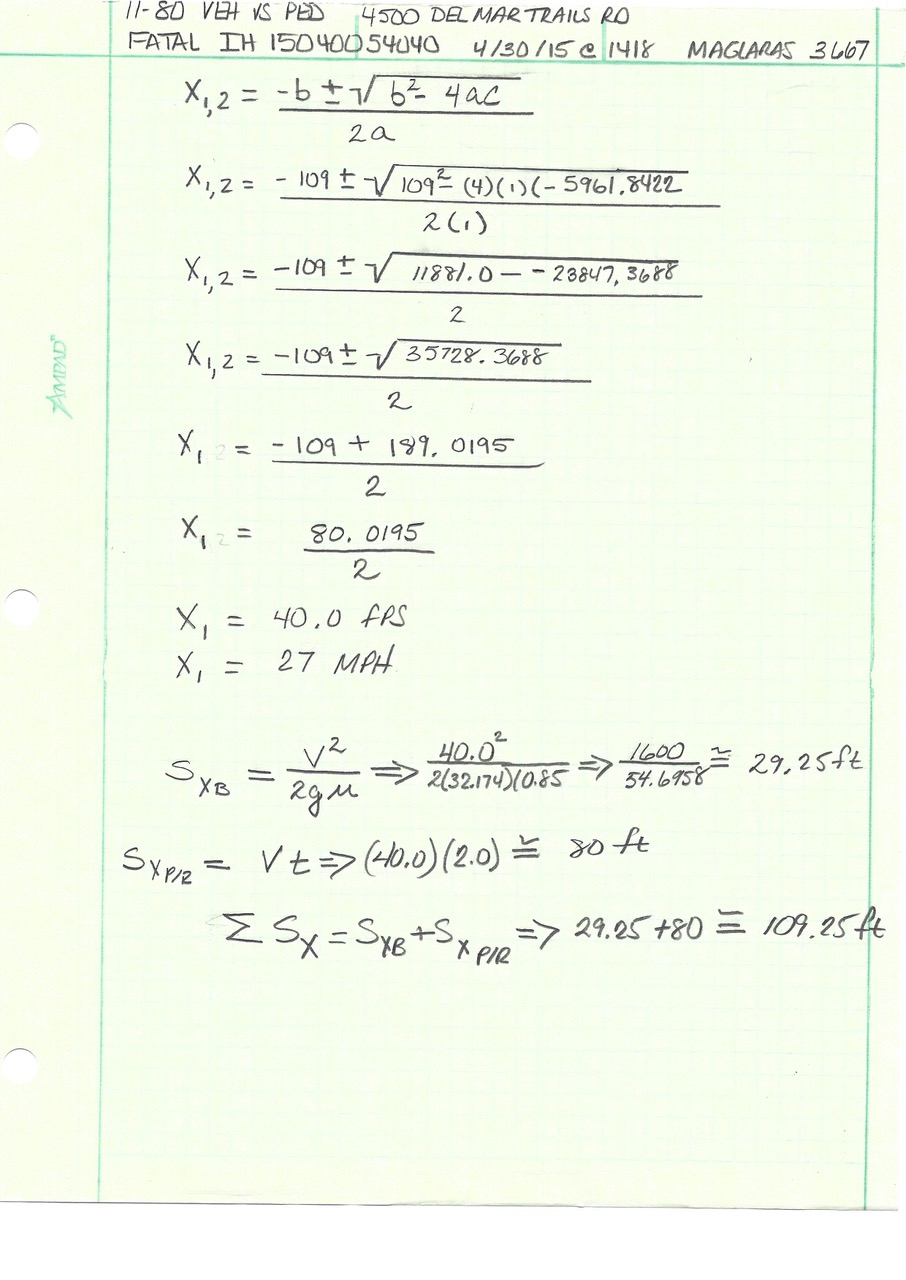 11-80 VEH VS PED 4500 DEL MAR TRAILS RD
FATAL IH 15040054040 4/30/15 @ 1418 MAGLARAS 3667
X₁,₂ = -b ± √ b² - 4ac
2a
X₁,₂ = - 109 ± √ 109² - (4)(1)(- 5961.8422
2(1)
X₁,₂ = -109 ± √ 11881.0 — - 23847.3688
2
X₁,₂ = -109 ± √ 35728.3688
2
AMPAD
X₁ ₂ = - 109 + 189.0195
2
X₁ ₂ = 80.0195
2
X₁ = 40.0 FPS
X₁ = 27 MPH
S_XB = V²/2gμ ⇒ 40.0²/2(32.174)(0.85 ⇒ 1600/54.6958 ≅ 29.25ft
S_X P/R = Vt ⇒ (40.0)(2.0) ≅ 80 ft
Σ S_X = S_XB + S_X P/R ⇒ 29.25 + 80 ≅ 109.25ft